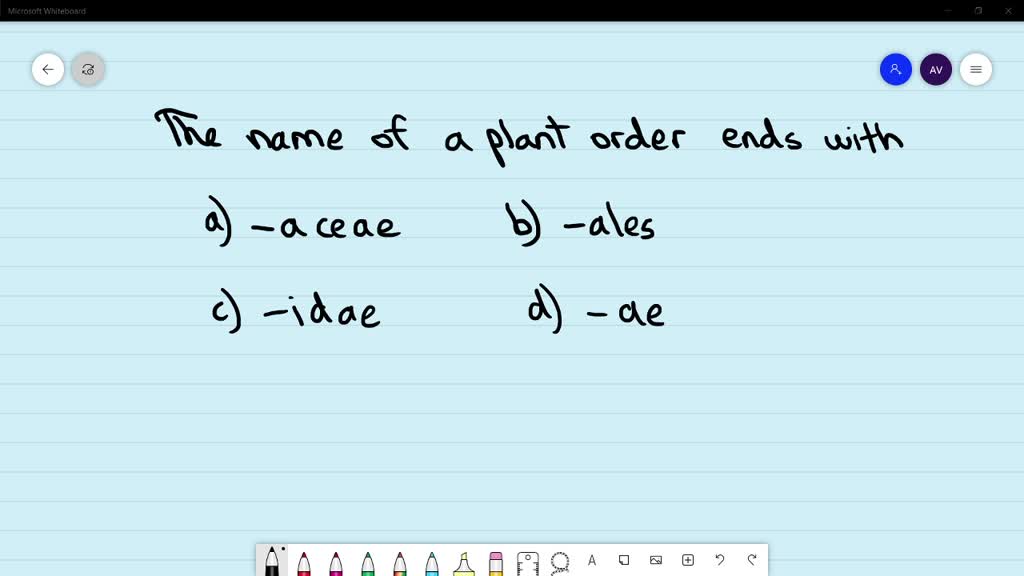 Microsoft Whiteboard
AV
The name of a plant order ends with
a) -aceae b) -ales
c) -idae d) -ae
A